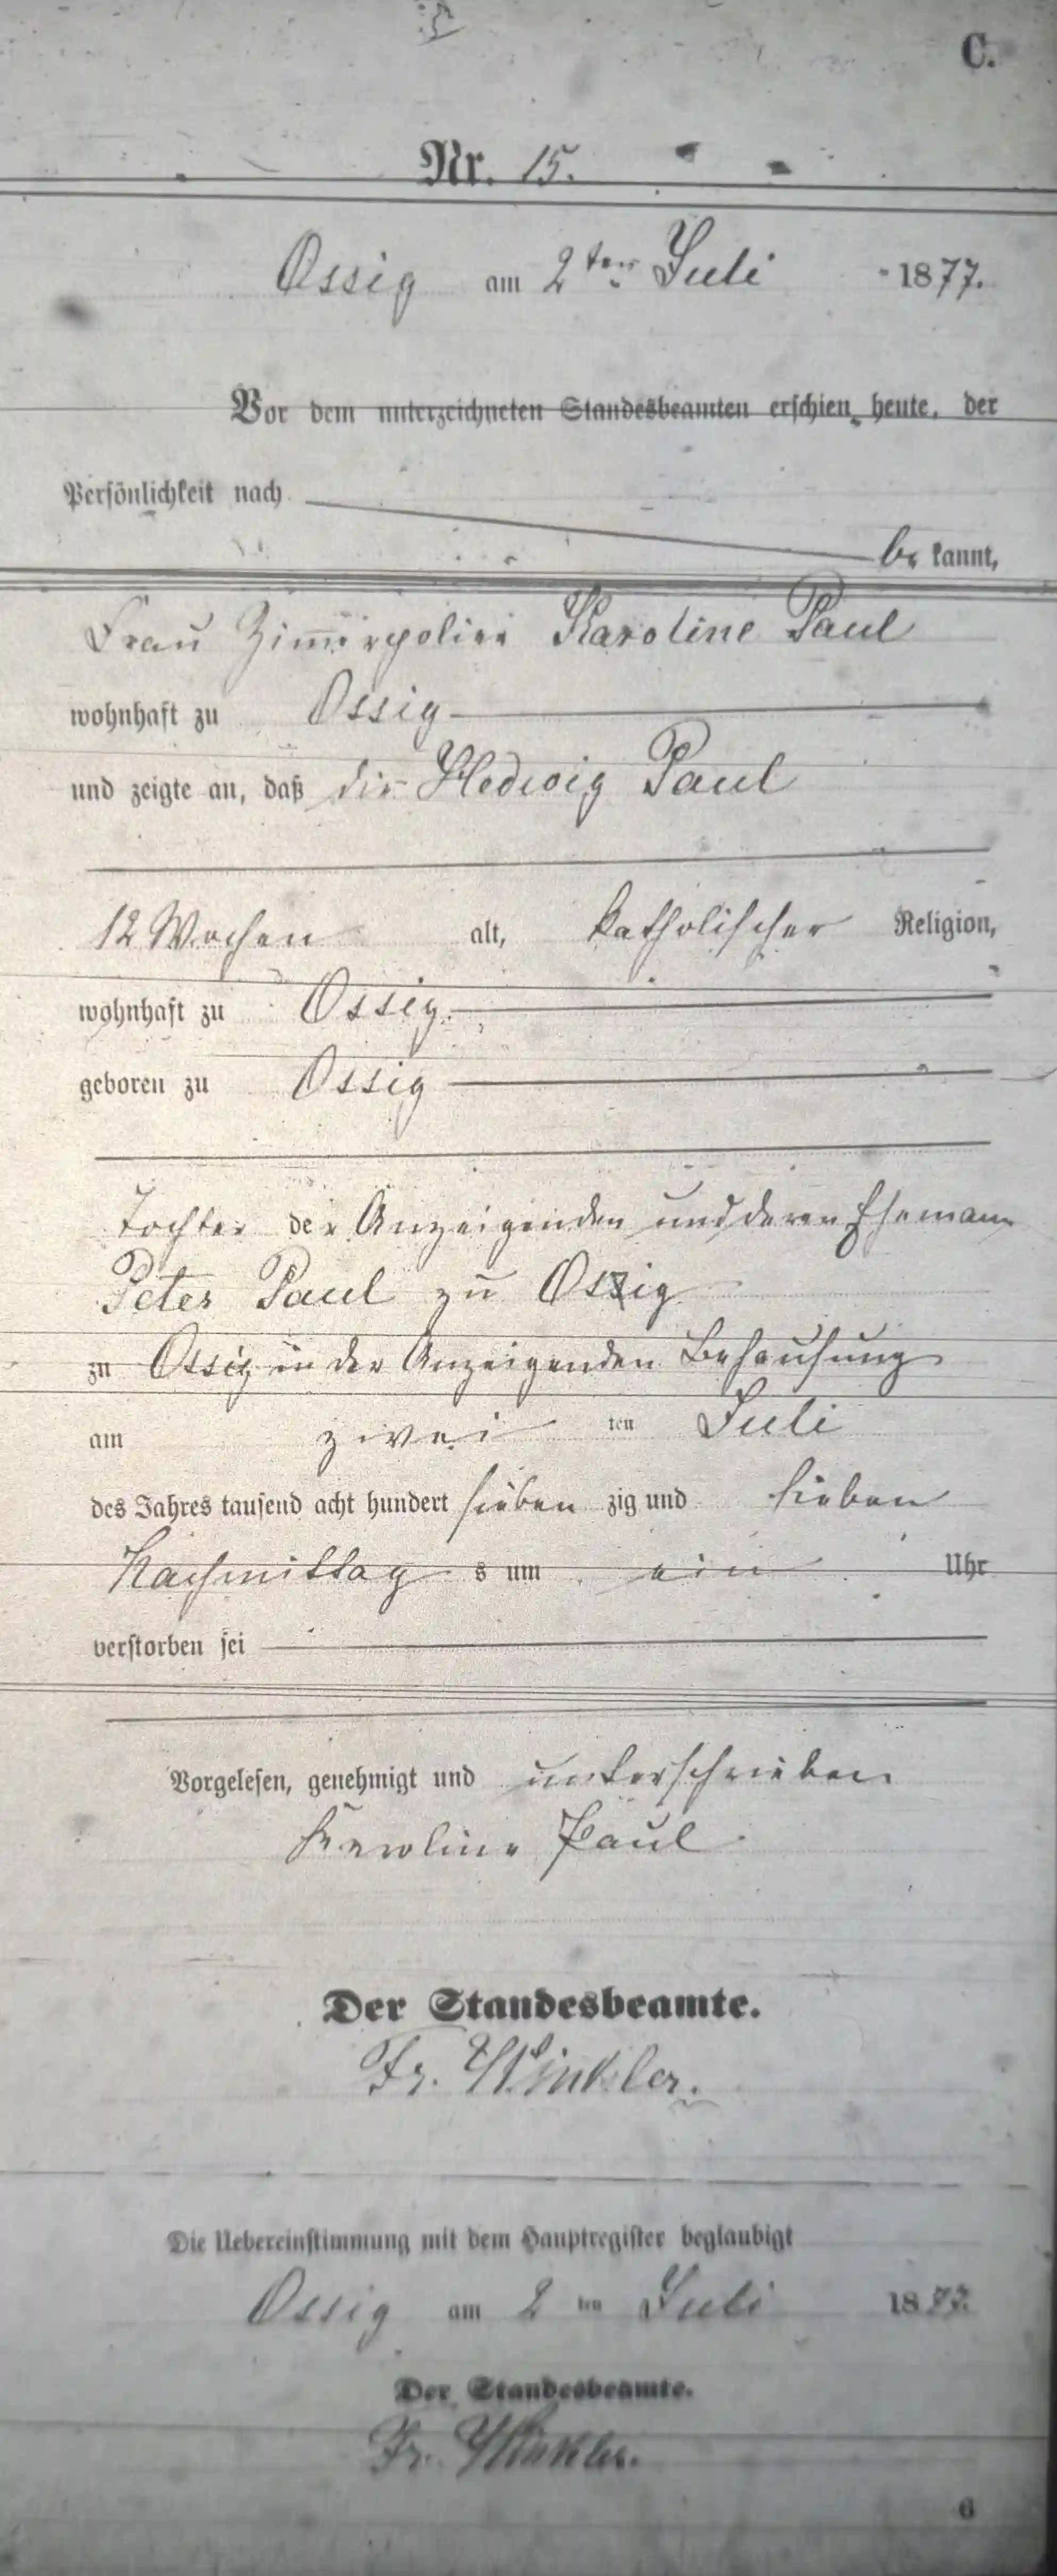 C.
Nr. 15.
Ossig am 2ten Juli 1877.
Vor dem unterzeichneten Standesbeamten erschien heute, der
Persönlichkeit nach
be kannt,
Frau Zimmerpolier Karoline Paul
wohnhaft zu Ossig
und zeigte an, daß die Hedwig Paul
12 Wochen alt, katholischer Religion,
wohnhaft zu Ossig
geboren zu Ossig
Tochter der Anzeigenden und deren Ehemann
Peter Paul zu Ossig
zu Ossig in der Anzeigenden Behausung
am zwei ten Juli
des Jahres tausend acht hundert sieben zig und sieben
Nachmittag s um ein Uhr
verstorben sei
Vorgelesen, genehmigt und unterschrieben
Karoline Paul
Der Standesbeamte.
Fr. Winkler.
Die Uebereinstimmung mit dem Hauptregister beglaubigt
Ossig am 2 ten Juli 1877.
Der Standesbeamte.
Fr. Winkler.
6